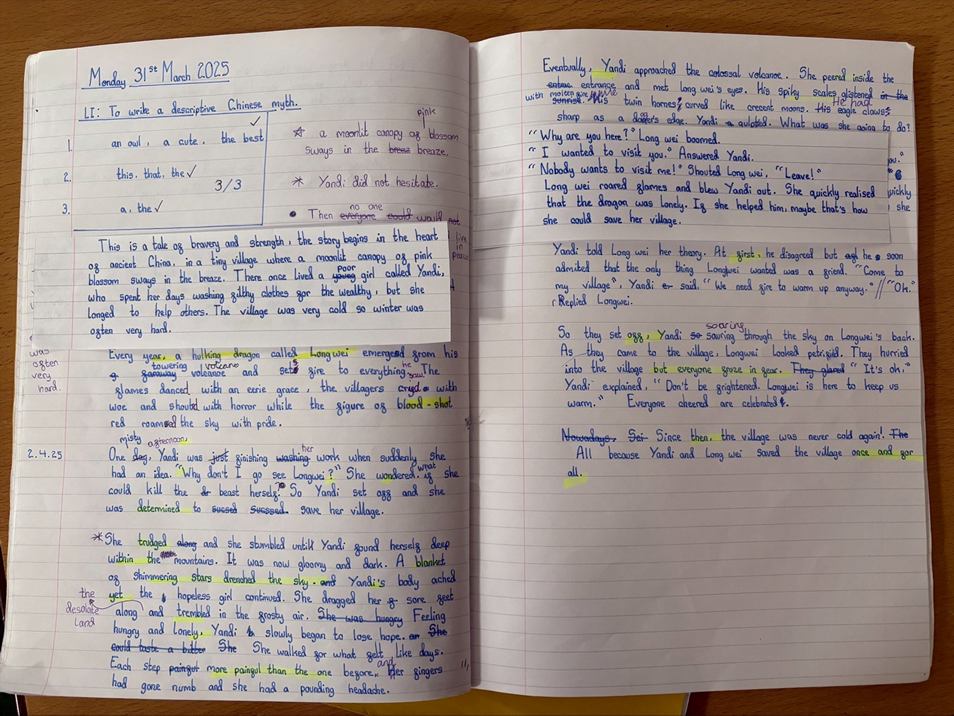 Monday 31st March 2025
LI: To write a descriptive Chinese myth.
1. an owl, a cute, the best
2. this, that, the
3/3
3. a, the
pink
a moonlit canopy of blossom
sways in the breaze breaze.
Yandi did not hesitate.
no one
Then everyone could
This is a tale of bravery and strength, the story begins in the heart
of ancient China, in a tiny village where a moonlit canopy of pink
blossom sways in the breaze. There once lived a young poor girl called Yandi,
who spent her days washing filthy clothes for the wealthy, but she
longed to help others. The village was very cold so winter was
often very hard.
was
often
very
hard.
Every year, a hulking dragon called Longwei emerged from his
towering volcano
faraway volcanoe and sets fire to everything he saw. The
flames danced with an eerie grace, the villagers cryd with
woe and shoutd with horror while the figure of blood-shot
red roamed the sky with pride.
misty afternoon,
2.4.25
One day, Yandi was just finishing washing her work when suddenly she
had an idea. "Why don't I go see Longwei?" She wondered. what if she
could kill the beast herself? So Yandi set off and she
was determined to save her village.
She trudged along and she stumbled untill Yandi found herself deep
within the mountains. It was now gloomy and dark. A blanket
of shimmering stars drenched the sky. and Yandi's body ached
yet the hopeless girl continued. She dragged her sore feet
the
desolate
land
along and trembled in the frosty air. She was hungry Feeling
hungry and lonely, Yandi slowly began to lose hope. She
could taste a bitter She She walked for what felt like days.
Each step painful more painful than the one before, and Her fingers
had gone numb and she had a pounding headache.
Eventually, Yandi approached the colossal volcanoe. She peered inside the
entrance and met Long wei's eyes. His spiky scales glistened in the
with molten fire
sunrise. His twin hornes curved like crecent moons. His He had eagle claws
sharp as a edge. Yandi What was she going to do?
"Why are you here?" Long wei boomed.
"I wanted to visit you." Answered Yandi.
"Nobody wants to visit me!" Shouted Long wei, "Leave!"
Long wei roared flames and blew Yandi out. She quickly realised
that the dragon was lonely. If she helped him, maybe that's how
she could save her village.
Yandi told Long wei her theory. At first, he disagreed but he soon
admited that the only thing Longwei wanted was a friend. "Come to
my village", Yandi said. "We need fire to warm up anyway." // "Oh."
Replied Longwei.
soaring
So they set off, Yandi sauring through the sky on Longwei's back.
As they came to the village, Longwei looked petrified. They hurried
into the village but everyone froze in fear. They glared "It's oh."
Yandi explained, "Don't be frightened. Longwei is here to keep us
warm." Everyone cheered are celebrated.
Nowadays, Since then, the village was never cold again! The
All because Yandi and Long wei saved the village once and for
all.